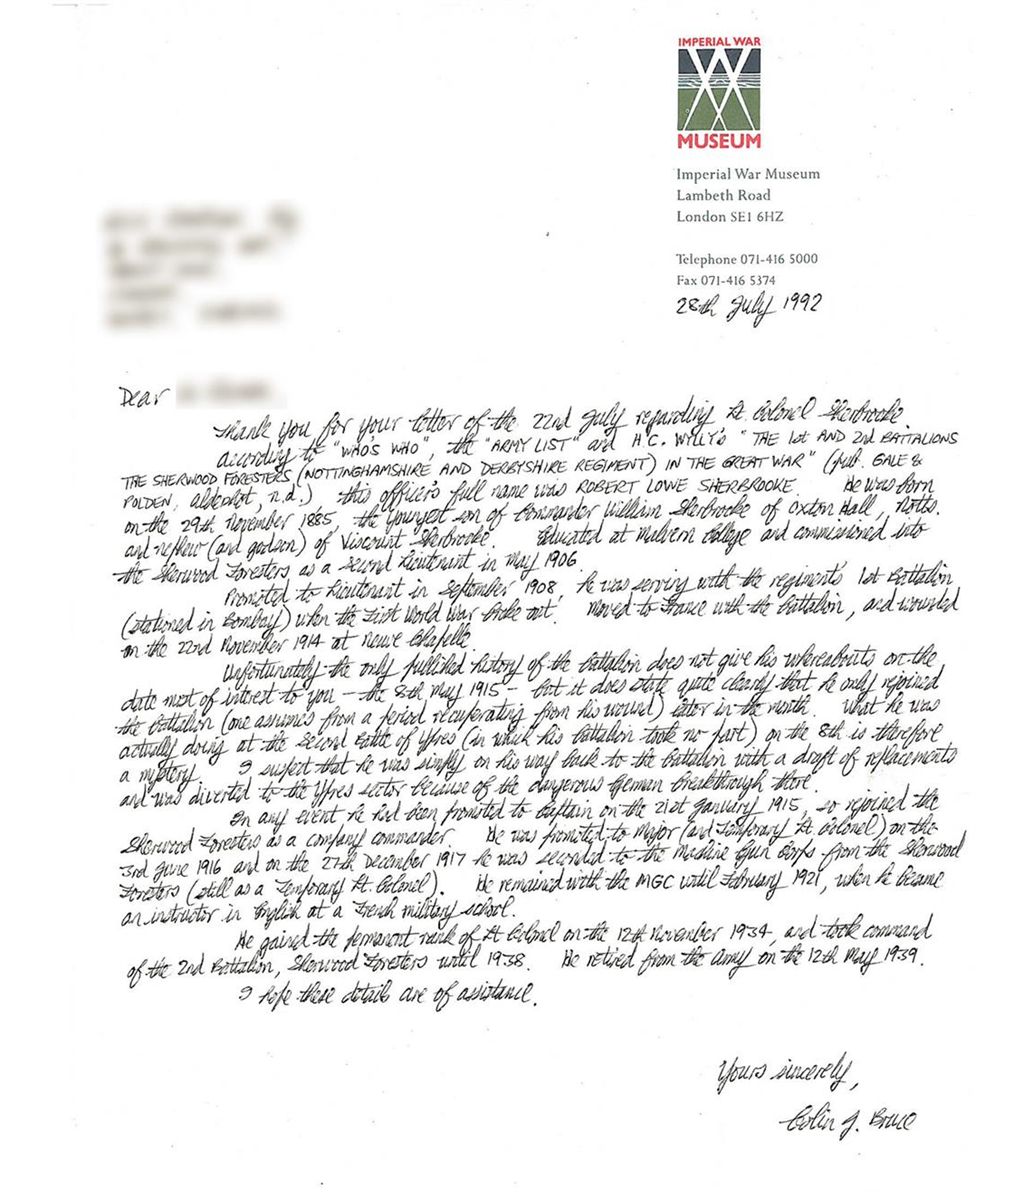 IMPERIAL WAR
MUSEUM
Imperial War Museum
Lambeth Road
London SE1 6HZ
Telephone 071-416 5000
Fax 071-416 5374
28th July 1992
Dear
Thank you for your letter of the 22nd July regarding Lt Colonel Sherbrooke.
According to "WHO'S WHO", the "ARMY LIST" and H.C. WYLLY'S "THE 1st AND 2nd BATTALIONS
THE SHERWOOD FORESTERS (NOTTINGHAMSHIRE AND DERBYSHIRE REGIMENT) IN THE GREAT WAR" (pub. GALE &
POLDEN, Aldershot, n.d.), this officer's full name was ROBERT LOWE SHERBROOKE. He was born
on the 29th November 1885, the youngest son of Commander William Sherbrooke of Oxton Hall, Notts.
and nephew (and godson) of Viscount Sherbrooke. Educated at Malvern College and commissioned into
the Sherwood Foresters as a Second Lieutenant in May 1906.
Promoted to Lieutenant in September 1908, he was serving with the regiment's 1st Battalion
(stationed in Bombay) when the First World War broke out. Moved to France with the battalion, and wounded
on the 22nd November 1914 at Neuve Chapelle.
Unfortunately the only published history of the battalion does not give his whereabouts on the
date most of interest to you - the 8th May 1915 - but it does state quite clearly that he only rejoined
the battalion (one assumes from a period recuperating from his wound) later in the month. What he was
actually doing at the Second Battle of Ypres (in which his battalion took no part) on the 8th is therefore
a mystery. I suspect that he was simply on his way back to the battalion with a draft of replacements
and was diverted to the Ypres sector because of the dangerous German breakthrough there.
In any event he had been promoted to Captain on the 21st January 1915, so rejoined the
Sherwood Foresters as a company commander. He was promoted to Major (and Temporary Lt. Colonel) on the
3rd June 1916 and on the 27th December 1917 he was seconded to the Machine Gun Corps from the Sherwood
Foresters (still as a Temporary Lt. Colonel). He remained with the MGC until February 1921, when he became
an instructor in English at a French military school.
He gained the permanent rank of Lt Colonel on the 12th November 1934, and took command
of the 2nd Battalion, Sherwood Foresters until 1938. He retired from the army on the 12th May 1939.
I hope these details are of assistance.
Yours sincerely,
Colin J. Bruce